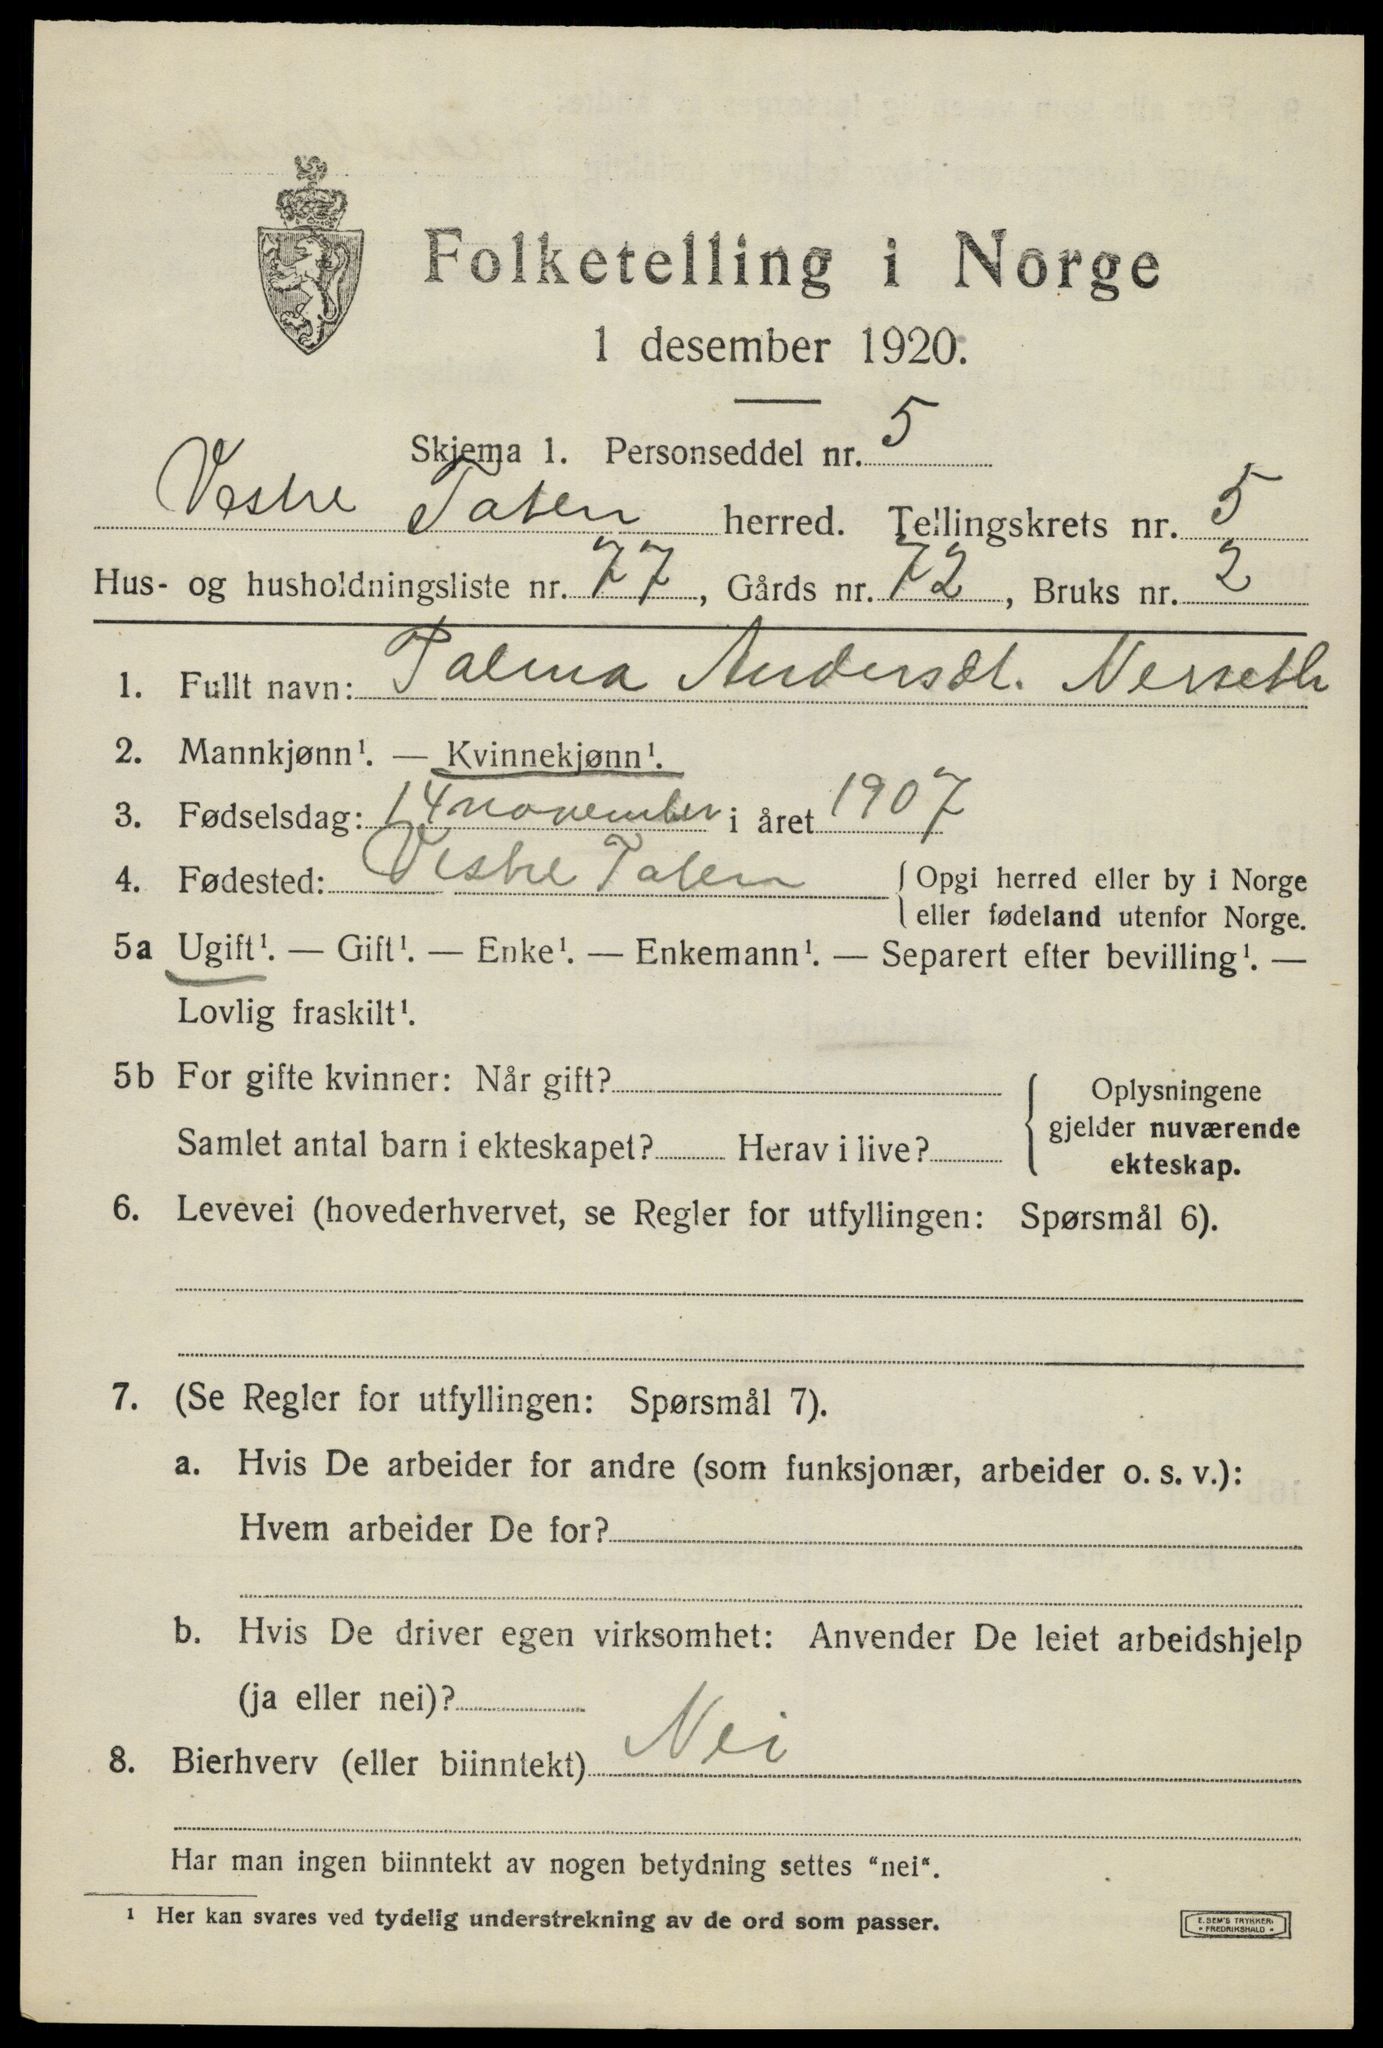 Folketelling i Norge
1 desember 1920.
Skjema 1. Personseddel nr. 5
Vestre Toten herred. Tellingskrets nr. 5
Hus- og husholdningsliste nr. 77, Gårds nr. 72, Bruks nr. 2
1. Fullt navn: Palma Andersdt. Nerseth
2. Mannkjønn¹. — Kvinnekjønn¹.
3. Fødselsdag: 14 november i året 1907
4. Fødested: Vestre Toten { Opgi herred eller by i Norge
eller fødeland utenfor Norge.
5a Ugift¹. — Gift¹. — Enke¹. — Enkemann¹. — Separert efter bevilling¹. —
Lovlig fraskilt¹.
5b For gifte kvinner: Når gift?
Samlet antal barn i ekteskapet? Herav i live?
{ Oplysningene
gjelder nuværende
ekteskap.
6. Levevei (hovederhvervet, se Regler for utfyllingen: Spørsmål 6).
7. (Se Regler for utfyllingen: Spørsmål 7).
a. Hvis De arbeider for andre (som funksjonær, arbeider o. s. v.):
Hvem arbeider De for?
b. Hvis De driver egen virksomhet: Anvender De leiet arbeidshjelp
(ja eller nei)?
8. Bierhverv (eller biinntekt) Nei
Har man ingen biinntekt av nogen betydning settes "nei".
¹ Her kan svares ved tydelig understrekning av de ord som passer.
E. SEM'S TRYKKERI
FREDRIKSHALD